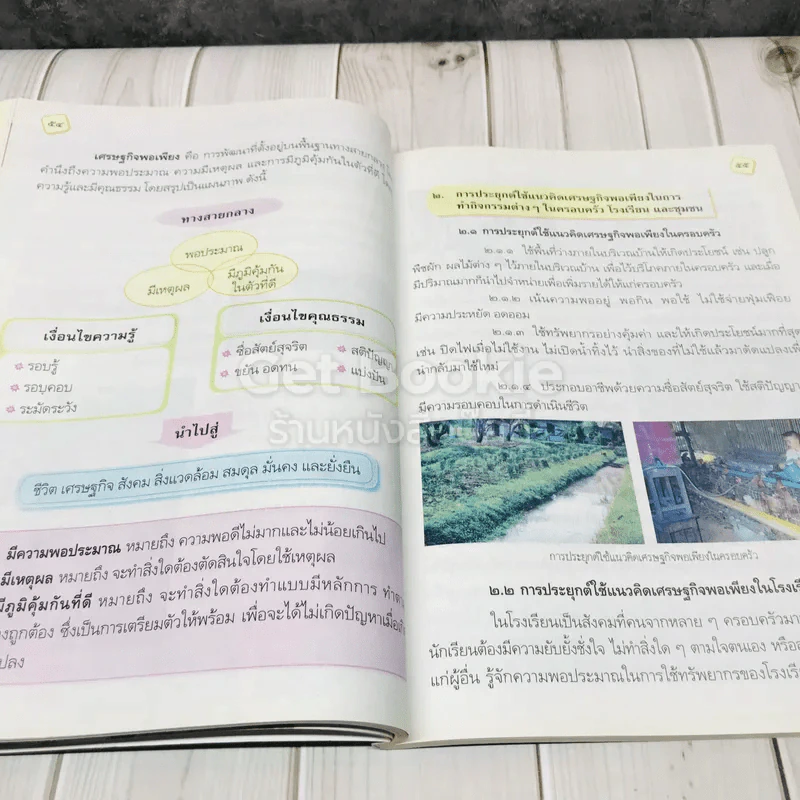 ๕๔
เศรษฐกิจพอเพียง คือ การพัฒนาที่ตั้งอยู่บนพื้นฐานทางสายกลาง
คำนึงถึงความพอประมาณ ความมีเหตุผล และการมีภูมิคุ้มกันในตัวที่ดี
ความรู้และมีคุณธรรม โดยสรุปเป็นแผนภาพ ดังนี้
ทางสายกลาง
พอประมาณ
มีเหตุผล
มีภูมิคุ้มกัน
ในตัวที่ดี
เงื่อนไขความรู้
รอบรู้
รอบคอบ
ระมัดระวัง
เงื่อนไขคุณธรรม
ซื่อสัตย์สุจริต สติปัญญา
ขยัน อดทน แบ่งปัน
นำไปสู่
ชีวิต เศรษฐกิจ สังคม สิ่งแวดล้อม สมดุล มั่นคง และยั่งยืน
มีความพอประมาณ หมายถึง ความพอดีไม่มากและไม่น้อยเกินไป
มีเหตุผล หมายถึง จะทำสิ่งใดต้องตัดสินใจโดยใช้เหตุผล
มีภูมิคุ้มกันที่ดี หมายถึง จะทำสิ่งใดต้องทำแบบมีหลักการ
ถูกต้อง ซึ่งเป็นการเตรียมตัวให้พร้อม เพื่อจะได้ไม่เกิดปัญหาเมื่อ
ปลง
๕๕
๒. การประยุกต์ใช้แนวคิดเศรษฐกิจพอเพียงในการ
ทำกิจกรรมต่าง ๆ ในครอบครัว โรงเรียน และชุมชน
๒.๑ การประยุกต์ใช้แนวคิดเศรษฐกิจพอเพียงในครอบครัว
๒.๑.๑ ใช้พื้นที่ว่างภายในบริเวณบ้านให้เกิดประโยชน์ เช่น ปลูก
พืชผัก ผลไม้ต่าง ๆ ไว้ภายในบริเวณบ้าน เพื่อไว้บริโภคภายในครอบครัว และเมื่อ
มีปริมาณมากก็นำไปจำหน่ายเพื่อเพิ่มรายได้ให้แก่ครอบครัว
๒.๑.๒ เน้นความพออยู่ พอกิน พอใช้ ไม่ใช้จ่ายฟุ่มเฟือย
มีความประหยัด อดออม
๒.๑.๓ ใช้ทรัพยากรอย่างคุ้มค่า และให้เกิดประโยชน์มากที่สุด
เช่น ปิดไฟเมื่อไม่ใช้งาน ไม่เปิดน้ำทิ้งไว้ นำสิ่งของที่ไม่ใช้แล้วมาดัดแปลงเพื่อ
นำกลับมาใช้ใหม่
๒.๑.๔ ประกอบอาชีพด้วยความซื่อสัตย์สุจริต ใช้สติปัญญา
มีความรอบคอบในการดำเนินชีวิต
Get Bookie
ร้านหนังสือ
การประยุกต์ใช้แนวคิดเศรษฐกิจพอเพียงในครอบครัว
๒.๒ การประยุกต์ใช้แนวคิดเศรษฐกิจพอเพียงในโรงเรีย
ในโรงเรียนเป็นสังคมที่คนจากหลาย ๆ ครอบครัวมา
นักเรียนต้องมีความยับยั้งชั่งใจ ไม่ทำสิ่งใด ๆ ตามใจตนเอง หรือ
แก่ผู้อื่น รู้จักความพอประมาณในการใช้ทรัพยากรของโรงเรีย